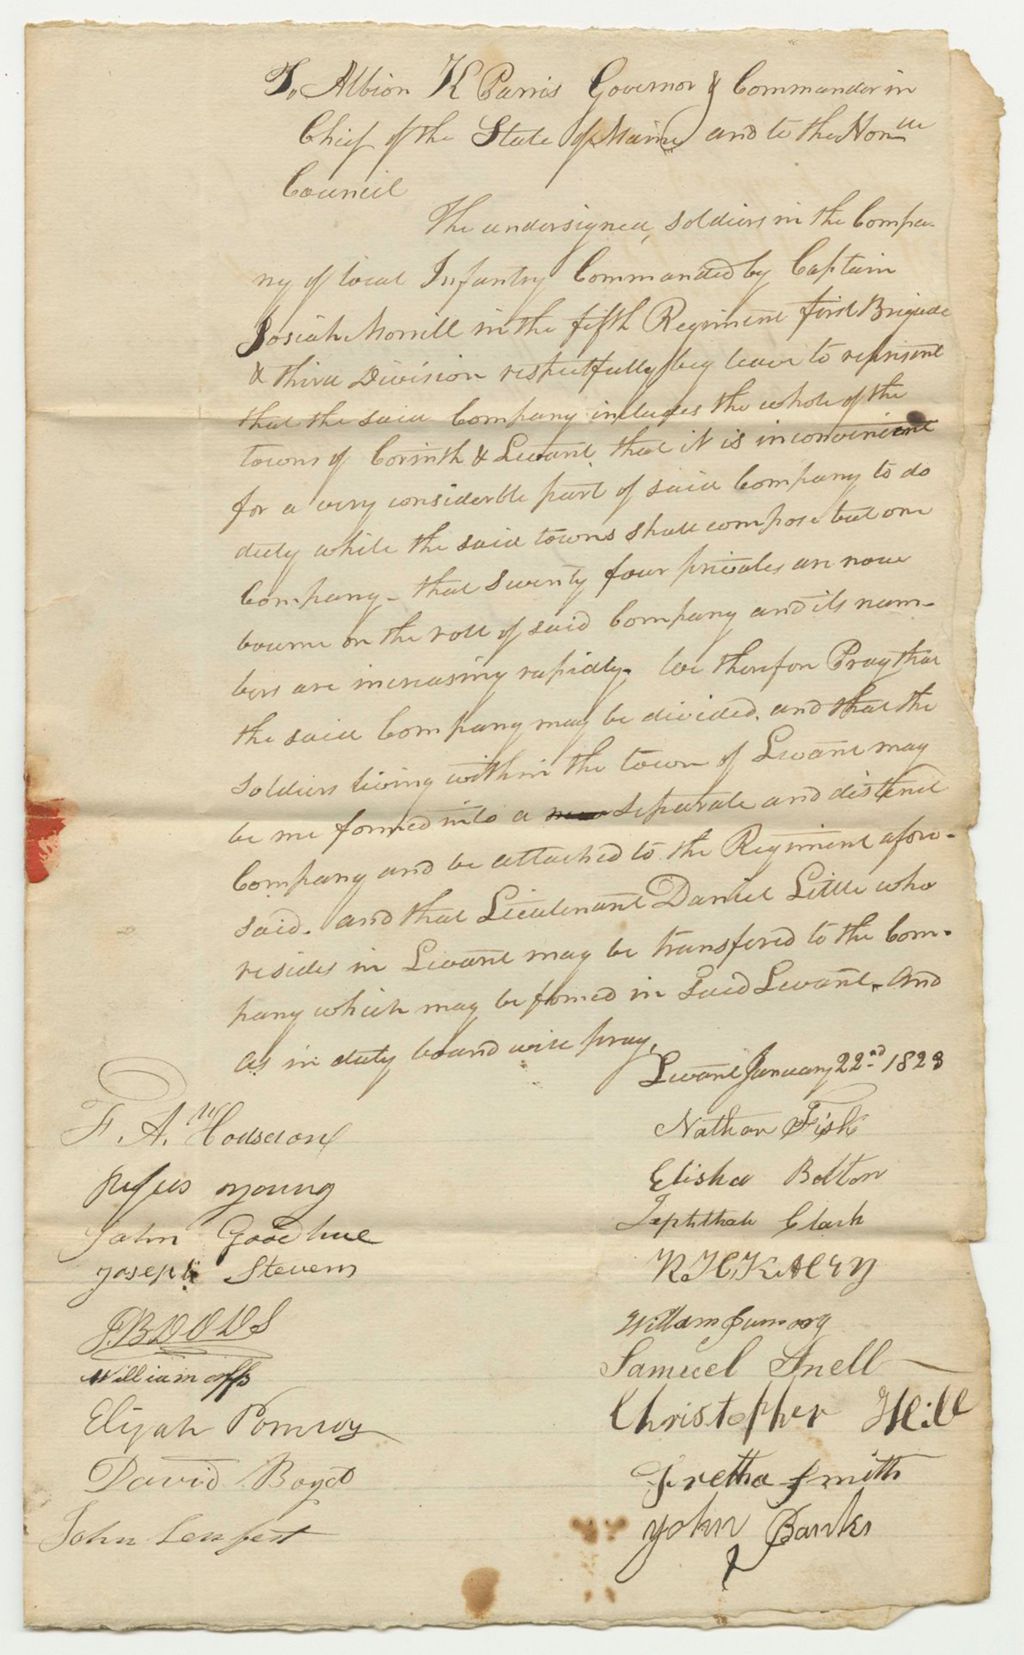 To Albion K Parris Governor & Commander in
Chief of the State of Maine and to the Honble
Council
The undersigned, soldiers in the Compa-
ny of local Infantry Commanded by Captain
Josiah Morrill in the fifth Regiment first Brigade
& third Division respectfully beg leave to represent
that the said Company includes the whole of the
towns of Corinth & Levant that it is inconvenient
for a very considerble part of said Company to do
duty while the said towns shall compose but one
Company - that Seventy four privates are now
bourne on the roll of said Company and its num-
bers are increasing rapidly. We therefore Pray that
the said Company may be divided, and that the
soldiers living within the town of Levant may
be formed into a separate and distinct
Company and be attached to the Regiment afore-
said. and that Lieutenant Daniel Little who
resides in Levant may be transfered to the Com-
pany which may be formed in said Levant. And
as in duty bound will pray.
Levant January 22nd 1823
F. A. Hodsdon
Rufus Young
John Goodhue
Joseph Stevens
J. B. DODS
William
Elijah Pomroy
David Boyd
John
Nathan Fish
Elisha Bolton
Jephthah Clark
William Pumroy
Samuel Snell
Christopher Hill
Smith
John Banks